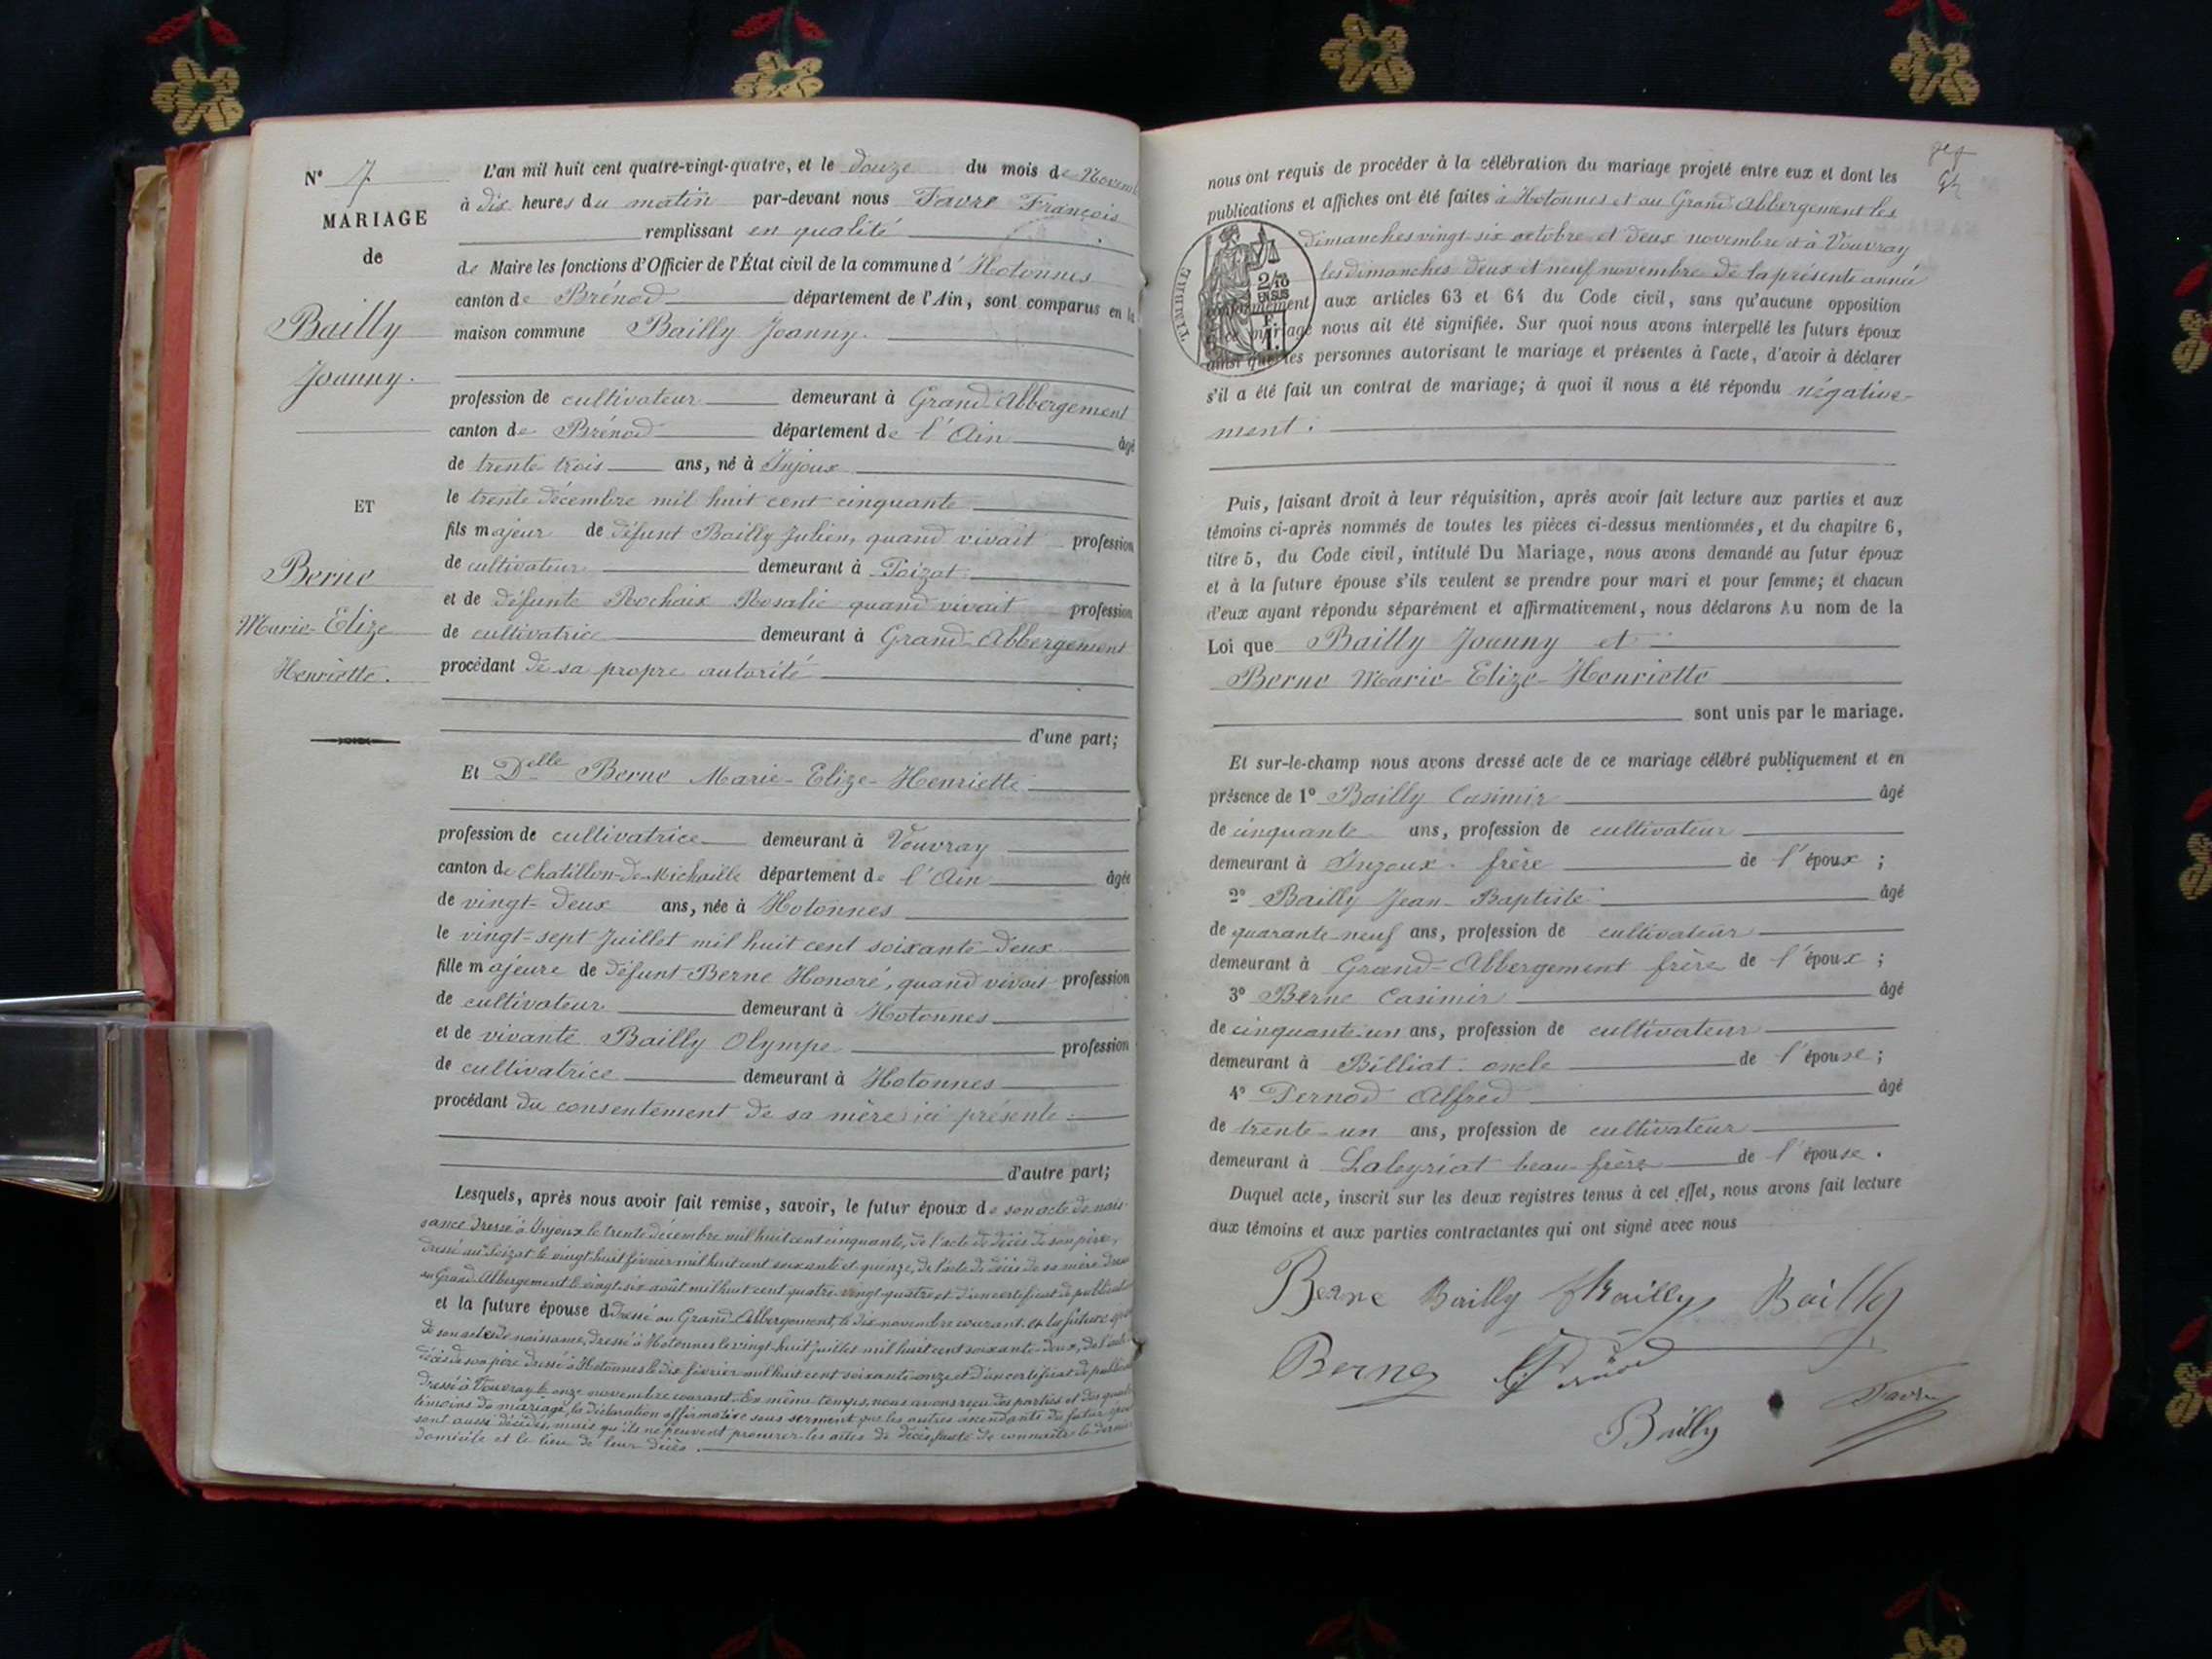 N° 7
MARIAGE
de
Bailly
Joanny.
ET
Berne
Marie-Elize
Henriette.
L'an mil huit cent quatre-vingt-quatre, et le douze du mois de Novemb
à dix heures du matin par-devant nous Favre François
remplissant en qualité
de Maire les fonctions d'Officier de l'État civil de la commune d'Hotonnes
canton de Brénod département de l'Ain, sont comparus en la
maison commune Bailly Joanny.
profession de cultivateur demeurant à Grand-Abbergement
canton de Brénod département de l'Ain âgé
de trente trois ans, né à Injoux
le trente décembre mil huit cent cinquante
fils majeur de défunt Bailly Julien, quand vivait profession
de cultivateur demeurant à Poizat
et de défunte Rochaix Rosalie quand vivait profession
de cultivatrice demeurant à Grand-Abbergement
procédant de sa propre autorité
d'une part;
Et Delle Berne Marie-Elize-Henriette
profession de cultivatrice demeurant à Vouvray
canton de Chatillon-de-Michaille département de l'Ain âgée
de vingt-deux ans, née à Hotonnes
le vingt-sept Juillet mil huit cent soixante-deux
fille majeure de défunt Berne Honoré, quand vivait profession
de cultivateur demeurant à Hotonnes
et de vivante Bailly Olympe profession
de cultivatrice demeurant à Hotonnes
procédant du consentement de sa mère ici présente
d'autre part;
Lesquels, après nous avoir fait remise, savoir, le futur époux de son acte de nais-
sance dressé à Injoux le trente décembre mil huit cent cinquante, de l'acte de décès de son père,
dressé au Poizat le vingt-huit février mil huit cent soixante et quinze, de l'acte de décès de sa mère dressé
au Grand-Abbergement le vingt-six août mil huit cent quatre-vingt-quatre et d'un certificat de publication
et la future épouse d dressé au Grand-Abbergement, le dix novembre courant. et la future épouse
de son acte de naissance, dressé à Hotonnes le vingt-huit juillet mil huit cent soixante-deux, de l'acte
décès de son père dressé à Hotonnes le dix février mil huit cent soixante-onze et d'un certificat de publication
dressé à Vouvray le onze novembre courant. En même temps, nous avons reçu des parties et des quatre
témoins du mariage, la déclaration affirmative sous serment que les autres ascendants du futur époux
sont aussi décédés, mais qu'ils ne peuvent procurer les actes de décès, faute de connaître le dernier
domicile et le lieu de leur décès.
nous ont requis de procéder à la célébration du mariage projeté entre eux et dont les
publications et affiches ont été faites à Hotonnes et au Grand-Abbergement les
dimanches vingt-six octobre et deux novembre et à Vouvray
les dimanches deux et neuf novembre de la présente année
TIMBRE
2/10
EN SUS
F.
1.
conformément aux articles 63 et 64 du Code civil, sans qu'aucune opposition
à ce mariage nous ait été signifiée. Sur quoi nous avons interpellé les futurs époux
ainsi que les personnes autorisant le mariage et présentes à l'acte, d'avoir à déclarer
s'il a été fait un contrat de mariage; à quoi il nous a été répondu négative-
ment.
Puis, faisant droit à leur réquisition, après avoir fait lecture aux parties et aux
témoins ci-après nommés de toutes les pièces ci-dessus mentionnées, et du chapitre 6,
titre 5, du Code civil, intitulé Du Mariage, nous avons demandé au futur époux
et à la future épouse s'ils veulent se prendre pour mari et pour femme; et chacun
d'eux ayant répondu séparément et affirmativement, nous déclarons Au nom de la
Loi que Bailly Joanny et
Berne Marie-Elize-Henriette
sont unis par le mariage.
Et sur-le-champ nous avons dressé acte de ce mariage célébré publiquement et en
présence de 1° Bailly Casimir âgé
de cinquante ans, profession de cultivateur
demeurant à Injoux. frère de l'époux;
2° Bailly Jean-Baptiste âgé
de quarante-neuf ans, profession de cultivateur
demeurant à Grand-Abbergement frère de l'époux;
3° Berne Casimir âgé
de cinquante-un ans, profession de cultivateur
demeurant à Billiat. oncle de l'épouse;
4° Pernod Alfred âgé
de trente-un ans, profession de cultivateur
demeurant à Laleyriat beau-frère de l'épouse.
Duquel acte, inscrit sur les deux registres tenus à cet effet, nous avons fait lecture
aux témoins et aux parties contractantes qui ont signé avec nous
Berne Bailly Bailly Bailly
Berne
Bailly Favre